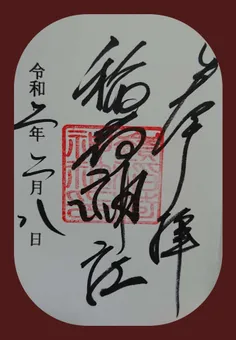 奉拝
稲荷神社
令和六年二月八日